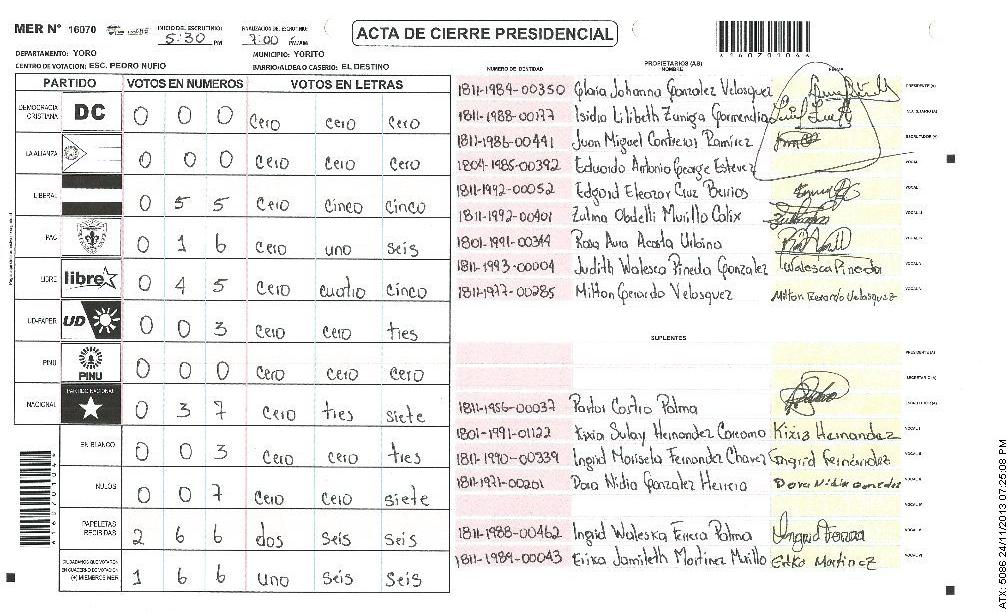 MER Nº 16070
INICIO DEL ESCRUTINIO: 5:30 PM
FINALIZACIÓN DEL ESCRUTINIO: 7:00 PM/AM
ACTA DE CIERRE PRESIDENCIAL
DEPARTAMENTO: YORO
MUNICIPIO: YORITO
CENTRO DE VOTACION: ESC. PEDRO NUFIO
BARRIO/ALDEA O CASERIO: EL DESTINO
PARTIDO VOTOS EN NUMEROS VOTOS EN LETRAS
DEMOCRACIA CRISTIANA DC 0 0 0 cero cero cero
LA ALIANZA 0 0 0 cero cero cero
LIBERAL 0 5 5 cero cinco cinco
PAC 0 1 6 cero uno seis
LIBRE libre 0 4 5 cero cuatro cinco
UD-FAPER UD 0 0 3 cero cero tres
PINU PINU 0 0 0 cero cero cero
NACIONAL PARTIDO NACIONAL 0 3 7 cero tres siete
EN BLANCO 0 0 3 cero cero tres
NULOS 0 0 7 cero cero siete
PAPELETAS RECIBIDAS 2 6 6 dos seis seis
CIUDADANOS QUE VOTARON EN CUADERNO DE VOTACION (+) MIEMBROS MER 1 6 6 uno seis seis
PROPIETARIOS (AS)
NUMERO DE IDENTIDAD NOMBRE FIRMA
1811-1984-00350 Gloria Johanna Gonzalez Velasquez PRESIDENTE (A)
1811-1988-00177 Isidia Lilibeth Zuniga Garmendia SECRETARIO (A)
1811-1986-00441 Juan Miguel Contreras Ramirez ESCRUTADOR (A)
1804-1985-00392 Eduardo Antonio George Estevez VOCAL I
1811-1992-00052 Edgard Eleazar Cruz Berrios
1811-1992-00401 Zulma Obdelli Murillo Calix
1801-1991-00344 Rosa Aura Acosta Urbina
1811-1993-00004 Judith Walesca Pineda Gonzalez Walesca Pineda
1811-1977-00285 Milton Gerardo Velasquez Milton Gerardo Velasquez
SUPLENTES
PRESIDENTE (A)
SECRETARIO (A)
1811-1956-00037 Pastor Castro Palma
1801-1991-01122 Kixia Sulay Hernandez Carcamo Kixia Hernandez
1811-1990-00339 Ingrid Marisela Fernandez Chavez Ingrid Fernández
1811-1971-00201 Dora Nidia Gonzalez Herrera Dora Nidia Gonzales
1811-1988-00462 Ingrid Waleska Ferrera Palma Ingrid Ferrera
1811-1989-00043 Erika Jamileth Martinez Murillo Erika Martinez
ATX: 5086 24/11/2013 07:25:08 PM